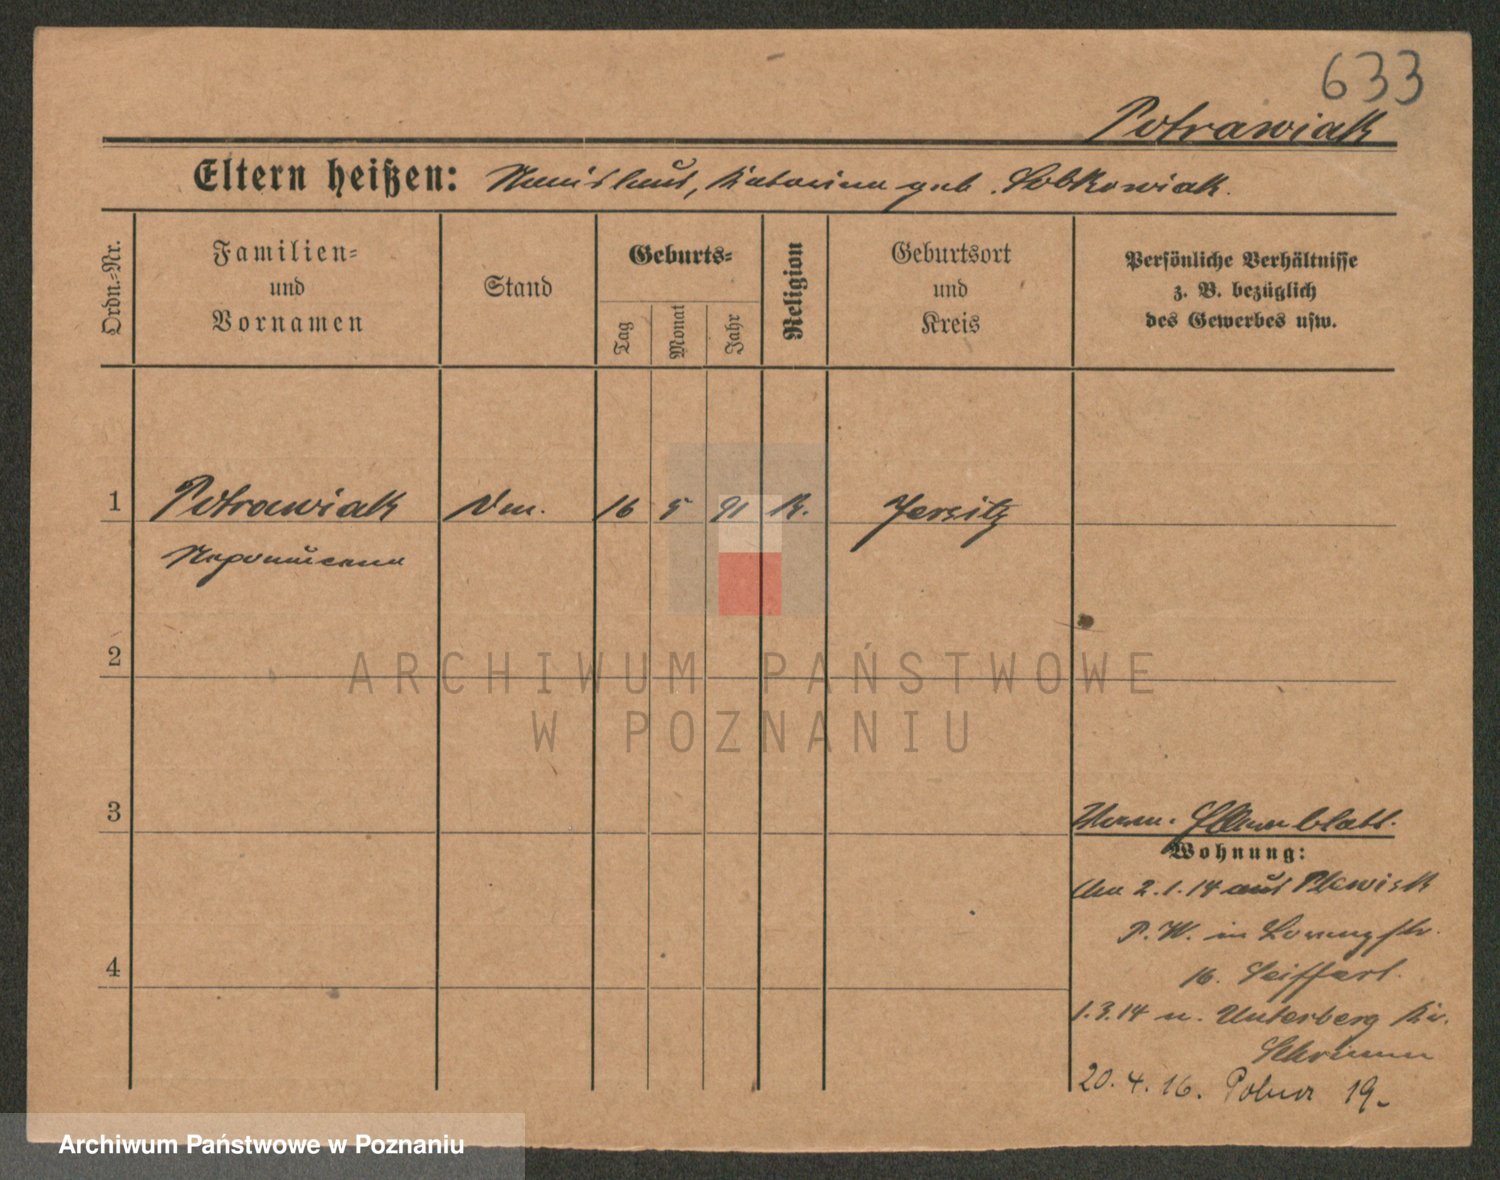 633
Potrawiak
Eltern heißen: Stanislaus, Katarina geb. Sobkowiak.
Ordn.-Nr.
Familien-
und
Vornamen
Stand
Geburts-
Tag
Monat
Jahr
Religion
Geburtsort
und
Kreis
Persönliche Verhältnisse
z. B. bezüglich
des Gewerbes usw.
1 Potrawiak 16 5 91 K. Jersitz
Nepomucena
2
3
Wohnung:
2.1.14 aus Plewisk
P. W. in
16. Seiffert.
4
1.3.14 n. Unterberg Kr.
Schrimm
20.4.16. 19-
ARCHIWUM PAŃSTWOWE
W POZNANIU
Archiwum Państwowe w Poznaniu